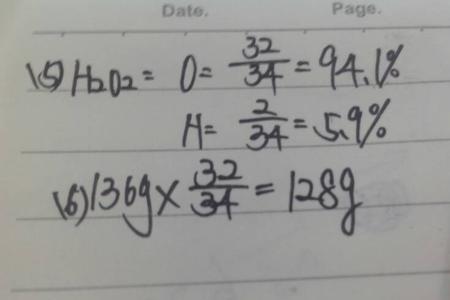 Date. Page.
(5) H2O2= O= 32/34 = 94.1%
H= 2/34 = 5.9%
(6) 136g × 32/34 = 128g